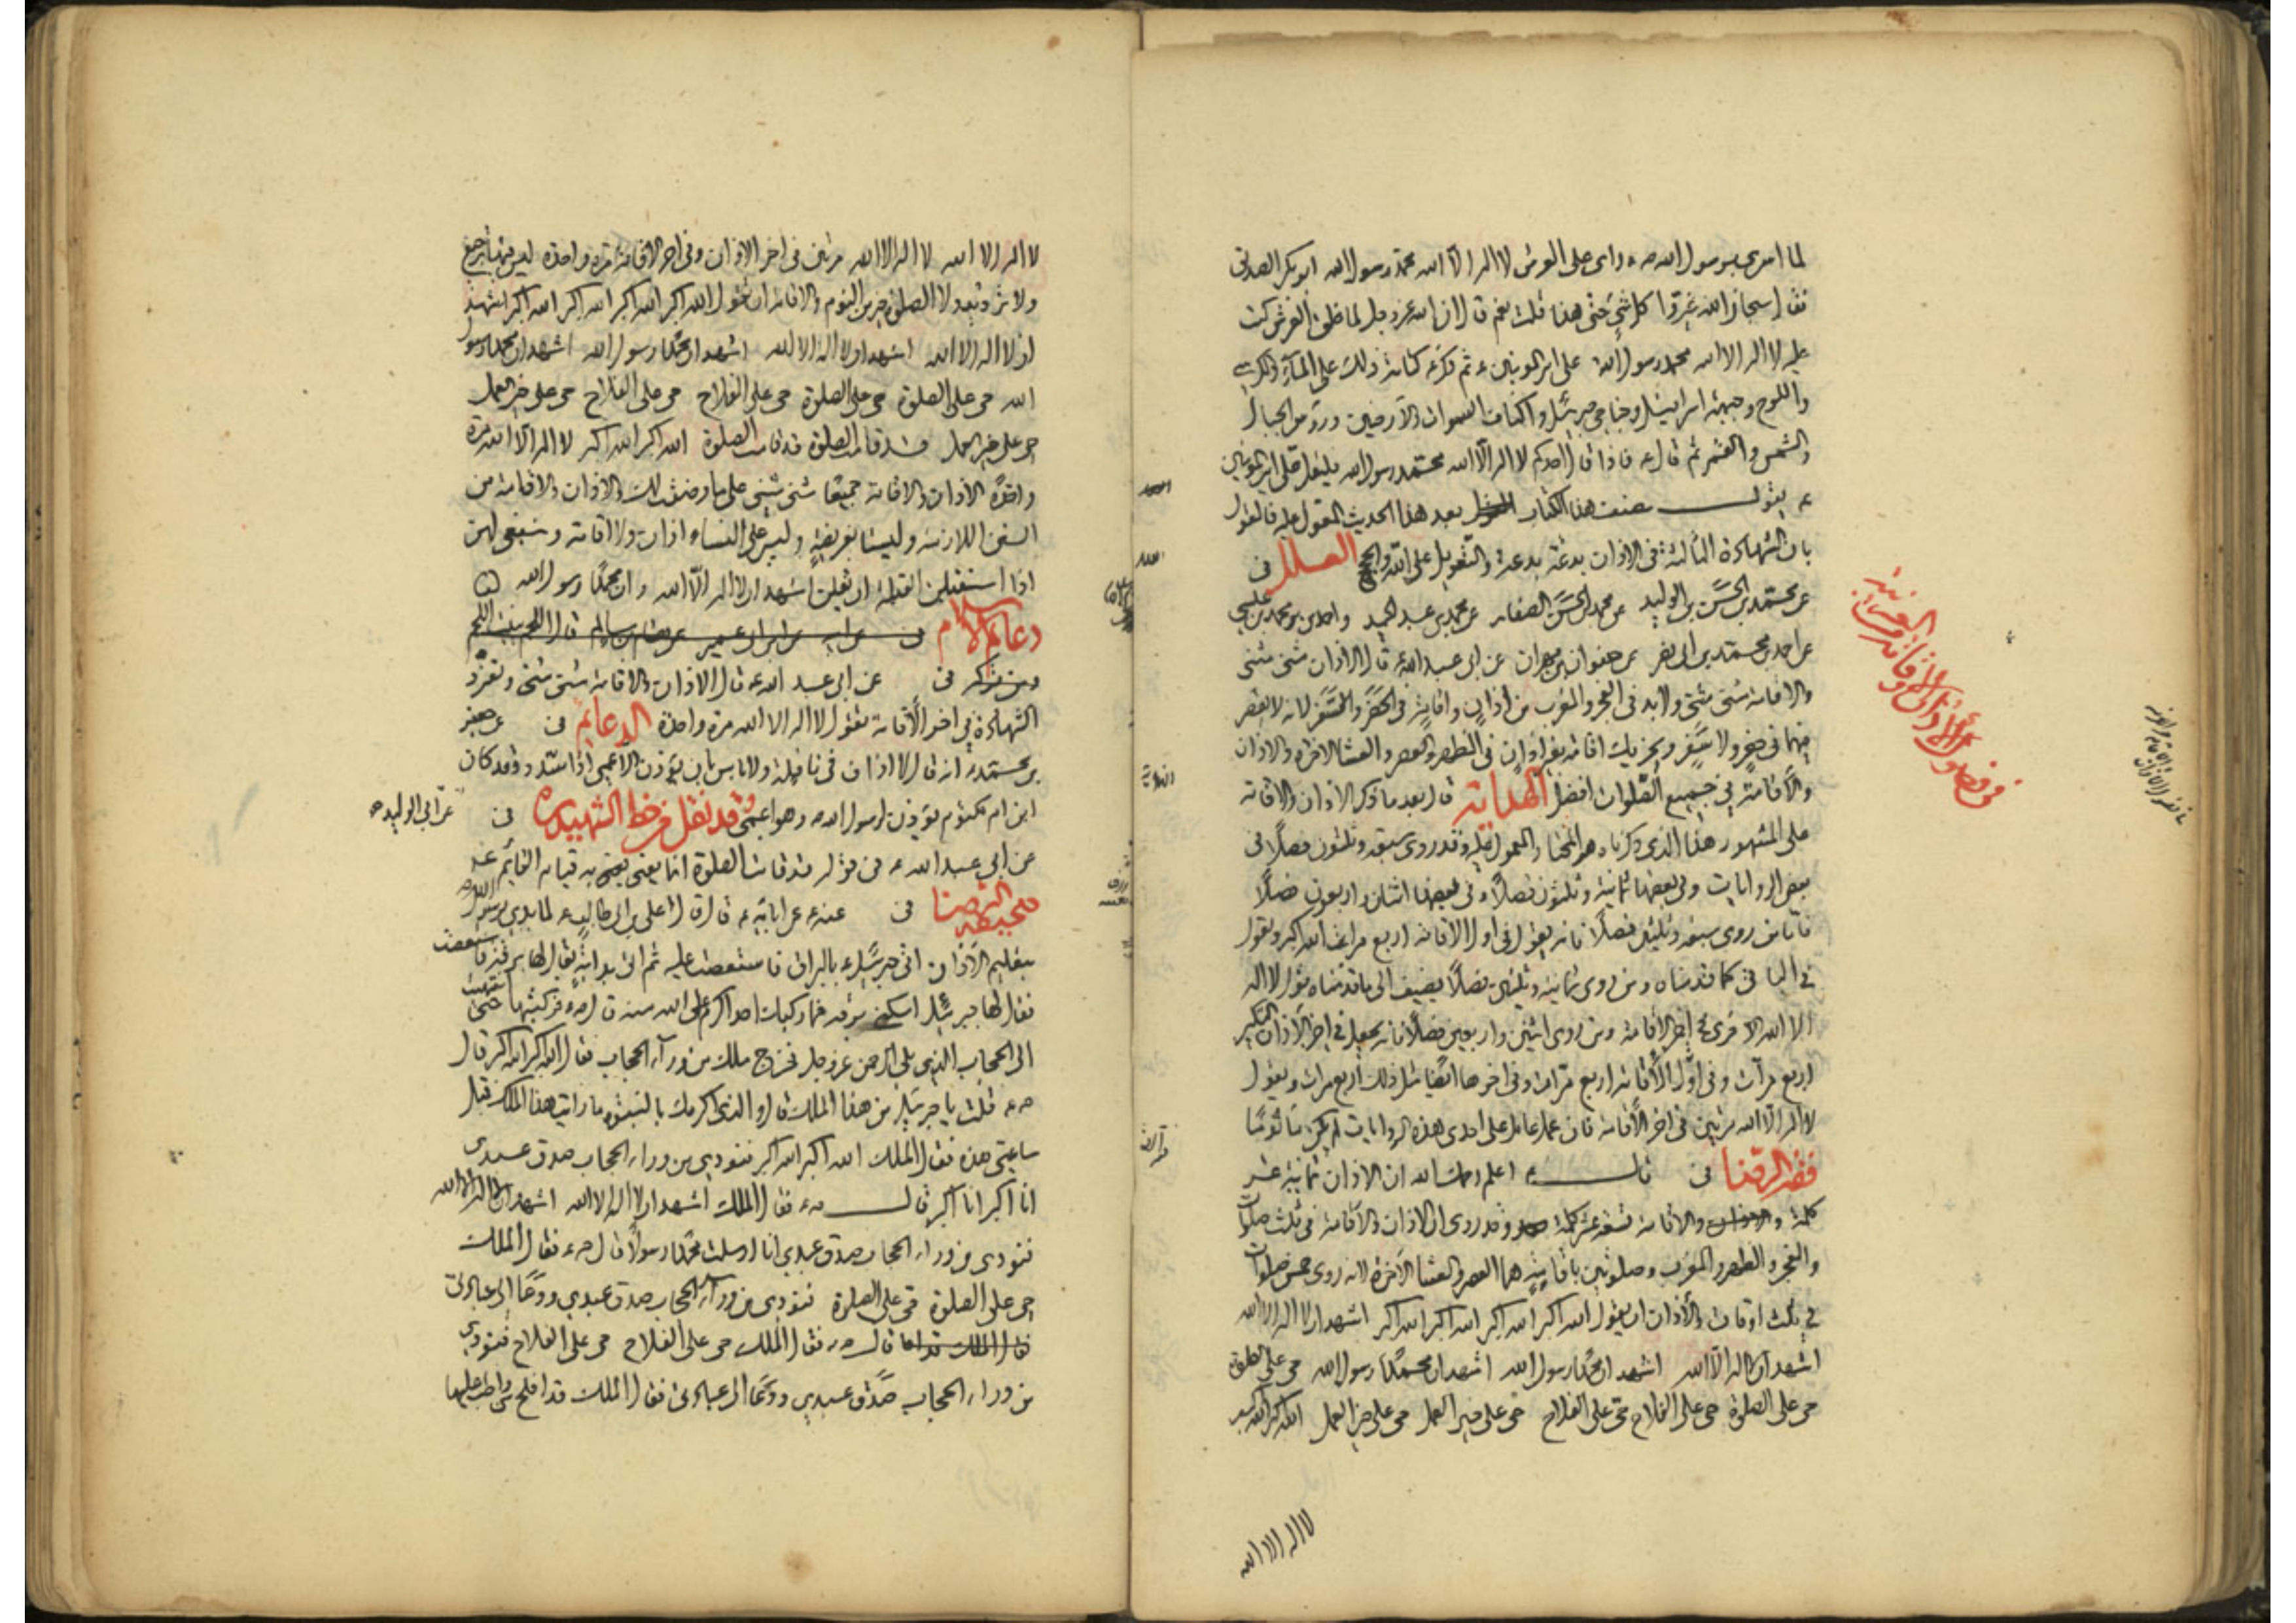 لما اسرى برسول الله ص راى على العرش لا اله الا الله محمد رسول الله ابو بكر الصديق
فقال سبحان الله غيروا كل شئ حتى هذا قلت نعم قال ان الله عز وجل لما خلق العرش كتب
عليه لا اله الا الله محمد رسول الله على امير المومنين ثم ذكر كتابة ذلك على الماء والكرسي
واللوح وجبهة اسرافيل وجناحي جبرئيل واكناف السموات والارضين ورؤس الجبال
والشمس والقمر ثم قال ع فاذا قال احدكم لا اله الا الله محمد رسول الله فليقل على امير المومنين
ع يقول مصنف هذا الكتاب بعد هذا الحديث المعول عليه فالقول
بان الشهادة الثالثة في الاذان بدعة بدعة والتعويل على الله والحجج العلل في
عن محمد بن الحسن بن الوليد عن محمد بن الحسن الصفار عن محمد بن عبد الحميد واحمد بن محمد بن عيسى
عن احمد بن محمد بن ابي نصر عن صفوان بن مهران عن ابي عبد الله ع قال الاذان مثنى مثنى
والاقامة مثنى مثنى ولا بد في الفجر والمغرب من اذان واقامة في الحضر والسفر لانه لا يقصر
فيهما في حضر ولا سفر ويجزيك اقامة بغير اذان في الظهر والعصر والعشاء الاخرة والاذان
والاقامة في جميع الصلوات افضل الهداية قال بعد ما ذكر الاذان والاقامة
على المشهور هذا الذي ذكرناه هو المختار المعمول عليه وقد روى سبعة وثلثون فصلا في
بعض الروايات وفي بعضها ثمانية وثلثون فصلا وفي بعضها اثنان واربعون فصلا
فاما من روى سبعة وثلثين فصلا فانه يقول في اول الاقامة اربع مرات الله اكبر ويقول
في الباقي كما قدمناه ومن روى ثمانية وثلثين فصلا يضيف الى ما قدمناه قول لا اله
الا الله اخرى في اخر الاقامة ومن روى اثنين واربعين فصلا فانه يجعل في اخر الاذان التكبير
اربع مرات وفي اول الاقامة اربع مرات وفي اخرها ايضا مثل ذلك اربع مرات ويقول
لا اله الا الله مرتين في اخر الاقامة فان عمل عامل على احدى هذه الروايات لم يكن مأثوما
فقه الرضا في قال ع اعلم رحمك الله ان الاذان ثمانية عشر
كلمة والاقامة تسعة عشر كلمة وقد روى ان الاذان والاقامة في ثلث صلوات
والفجر والظهر والمغرب وصلوتين باقامة هما العصر والعشاء الاخرة لانه روى خمس صلوات
في ثلث اوقات والاذان ان يقول الله اكبر الله اكبر الله اكبر الله اكبر اشهد ان لا اله الا الله
اشهد ان لا اله الا الله اشهد ان محمدا رسول الله اشهد ان محمدا رسول الله حي على الصلوة
حي على الصلوة حي على الفلاح حي على الفلاح حي على خير العمل حي على خير العمل الله اكبر الله اكبر
لا اله الا الله
لا اله الا الله لا اله الا الله مرتين في اخر الاذان وفي اخر الاقامة مرة واحدة ليس فيها ترجيع
ولا تردد ولا الصلوة خير من النوم والاقامة ان تقول الله اكبر الله اكبر الله اكبر الله اكبر اشهد
ان لا اله الا الله اشهد ان لا اله الا الله اشهد ان محمدا رسول الله اشهد ان محمدا رسول
الله حي على الصلوة حي على الصلوة حي على الفلاح حي على الفلاح حي على خير العمل
حي على خير العمل قد قامت الصلوة قد قامت الصلوة الله اكبر الله اكبر لا اله الا الله مرة
واحدة الاذان والاقامة جميعا مثنى مثنى على ما وصفت لك والاذان والاقامة من
السنن اللازمة وليستا بفريضة وليس على النساء اذان ولا اقامة وينبغي لهن
اذا استقبلن القبلة ان يقلن اشهد ان لا اله الا الله وان محمدا رسول الله
دعائم الاسلام في عن ابيه عن ابن ابي عمير عن هشام بن سالم قال اللحم ينبت اللحم
في عن ابي عبد الله ع قال الاذان والاقامة مثنى مثنى وتفرد
الشهادة في اخر الاقامة تقول لا اله الا الله مرة واحدة الدعائم في عن جعفر
بن محمد انه قال لا اذان في نافلة ولا باس بان يؤذن الاعمى اذا سدد وقد كان
ابن ام مكتوم يؤذن لرسول الله ص وهو اعمى وقد نقل من خط الشهيد ره في عن ابي الوليد
عن ابي عبد الله ع في قول قد قامت الصلوة انما يعني به قيام القائم ع
صحيفة الرضا في عنه عن ابائه ع قال قال علي بن ابي طالب ع لما بدي رسول الله ص
بتعليم الاذان اتى جبرئيل ع بالبراق فاستصعب عليه ثم اتى بدابة يقال لها برقة فاستصعبت
فقال لها جبرئيل اسكني برقة فما ركبك احد اكرم على الله منه قال ص فركبتها حتى انتهيت
الى الحجاب الذي يلي الرحمن عز وجل فخرج ملك من وراء الحجاب فقال الله اكبر الله اكبر قال
ص قلت يا جبرئيل من هذا الملك قال والذي اكرمك بالنبوة ما رايت هذا الملك قبل
ساعتي هذه فقال الملك الله اكبر الله اكبر فنودي من وراء الحجاب صدق عبدي
انا اكبر انا اكبر قال ص فقال الملك اشهد ان لا اله الا الله اشهد ان لا اله الا الله
فنودي من وراء الحجاب صدق عبدي انا ارسلت محمدا رسولا قال ص فقال الملك
حي على الصلوة حي على الصلوة فنودي من وراء الحجاب صدق عبدي ودعا الى عبادتي
قال ص فقال الملك حي على الفلاح حي على الفلاح فنودي
من وراء الحجاب صدق عبدي ودعا الى عبادتي فقال الملك قد افلح من واظب عليها